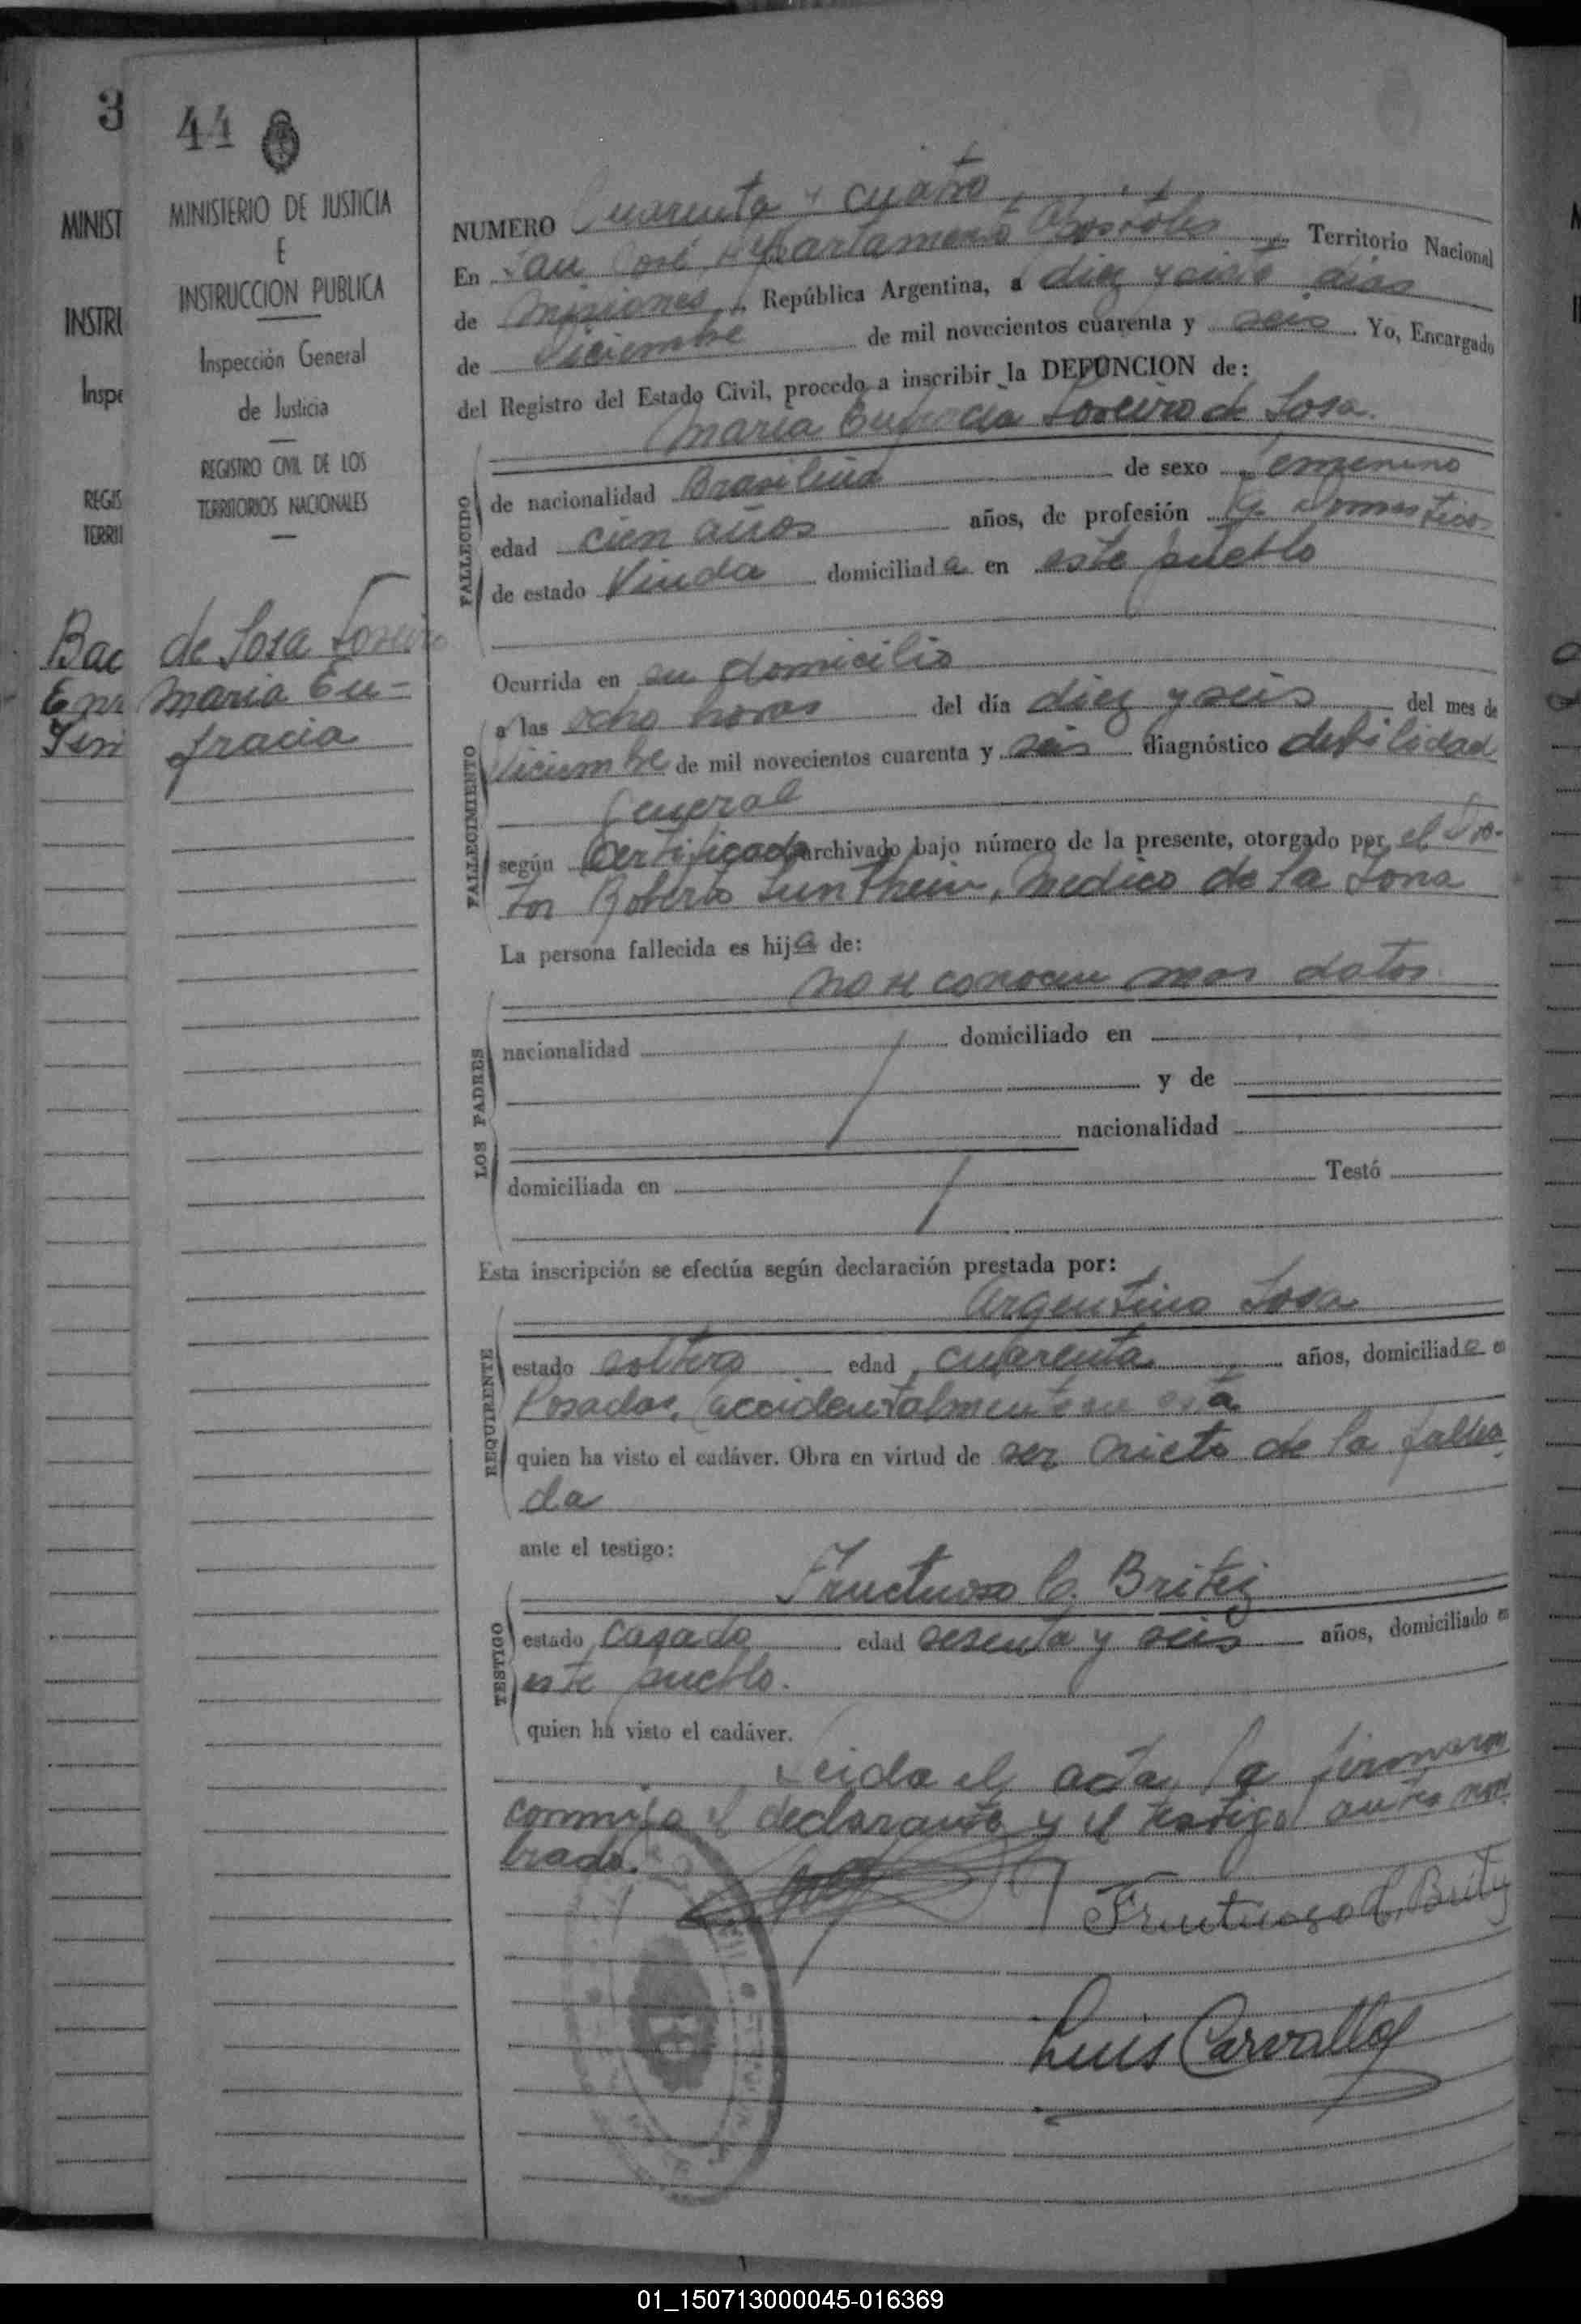 3
MINIST
INSTRU
Inspe
REGIS
TERRI
Bac
44
MINISTERIO DE JUSTICIA
E
INSTRUCCION PUBLICA
Inspección General
de Justicia
REGISTRO CIVIL DE LOS
TERRITORIOS NACIONALES
de Sosa Loreiro
Maria Eu-
fracia
NUMERO Cuarenta y cuatro
En San José, Departamento Apostoles, Territorio Nacional
de Misiones, República Argentina, a diez y siete dias
de Diciembre de mil novecientos cuarenta y seis Yo, Encargado
del Registro del Estado Civil, procedo a inscribir la DEFUNCION de:
Maria Eufracia Loreiro de Sosa.
FALLECIDO
de nacionalidad Brasileña de sexo Femenino
edad cien años años, de profesión Q. Domesticos
de estado Viuda domiciliada en este pueblo
FALLECIMIENTO
Ocurrida en su domicilio
a las ocho horas del día diez y seis del mes de
Diciembre de mil novecientos cuarenta y seis diagnóstico debilidad
General
según Certificado archivado bajo número de la presente, otorgado por el Doc-
tor Roberto, Medico de la Zona
La persona fallecida es hija de:
no se conocen mas datos
LOS PADRES
nacionalidad domiciliado en
y de
nacionalidad
domiciliada en Testó
Esta inscripción se efectúa según declaración prestada por:
Argentino Sosa
REQUIRENTE
estado soltero edad cuarenta años, domiciliado en
Posadas, accidentalmente en esta
quien ha visto el cadáver. Obra en virtud de ser nieto de la falleci
da
ante el testigo:
Fructuoso C. Britez
TESTIGO
estado casado edad sesenta y seis años, domiciliado en
este pueblo.
quien ha visto el cadáver.
Leida el acta, la firmaron
conmigo el declarante y el testigo antes nom
brado.
Fructuoso C. Britez
Luis Carvallo
01_150713000045-016369